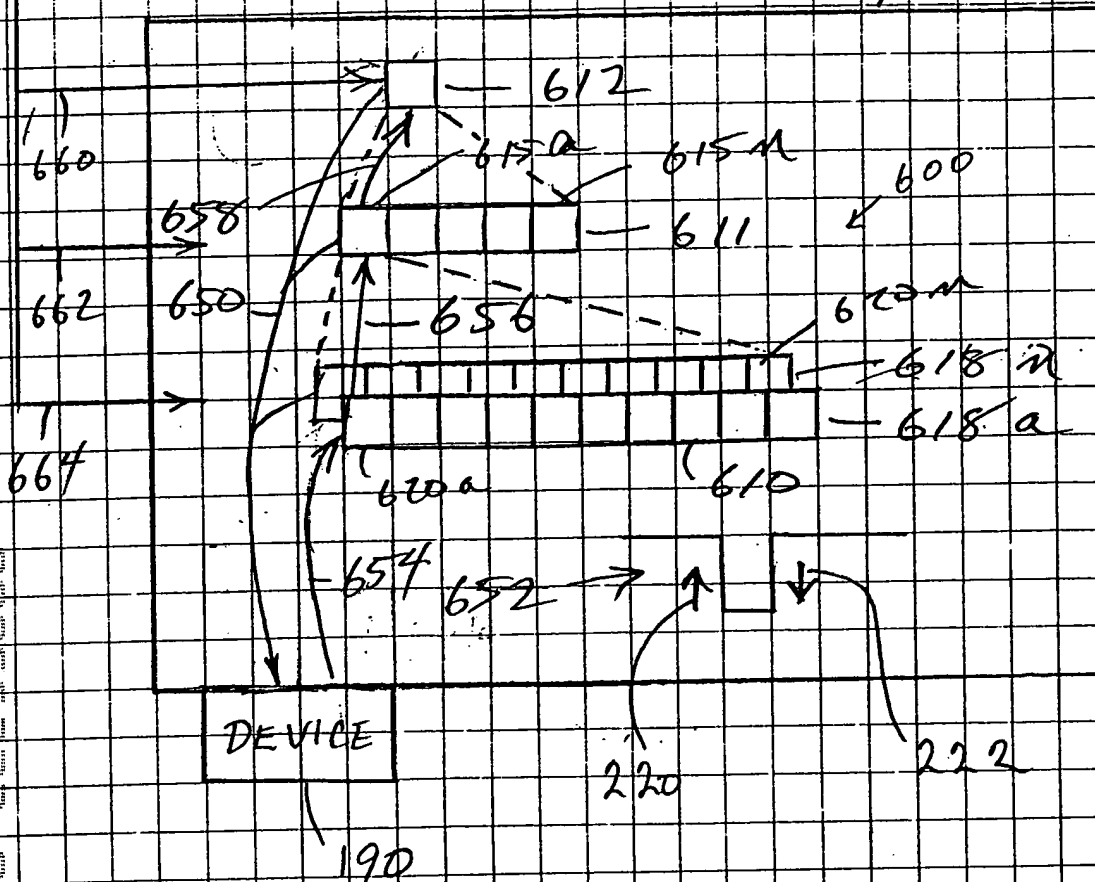 612
660
615a
615n
600
658
611
662
650
656
620n
618n
618a
664
620a
610
654
652
DEVICE
220
222
190